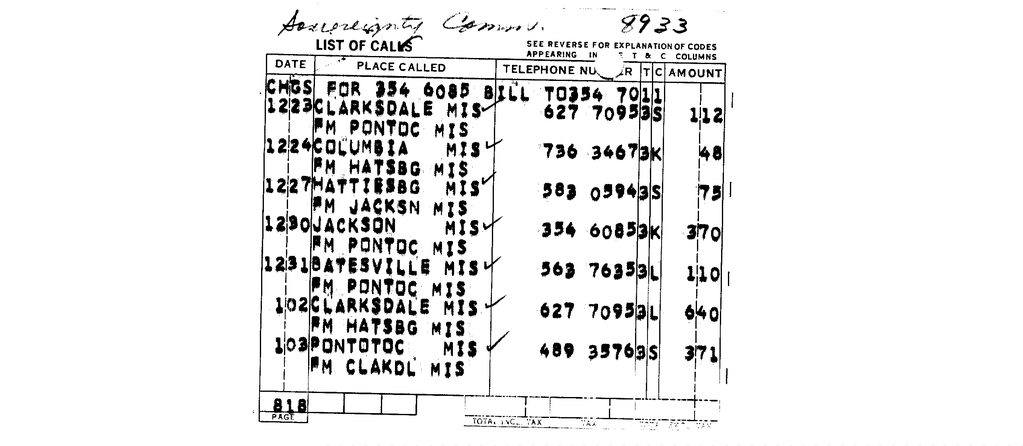 Sovereignty Comm. 8933
LIST OF CALLS
SEE REVERSE FOR EXPLANATION OF CODES
APPEARING IN T & C COLUMNS
DATE PLACE CALLED TELEPHONE NU ER T C AMOUNT
CHGS FOR 354 6085 BILL TO354 7011
1223 CLARKSDALE MIS 627 7095 3 S 112
FM PONTOC MIS
1224 COLUMBIA MIS 736 3467 3 K 48
FM HATSBG MIS
1227 HATTIESBG MIS 583 0594 3 S 75
FM JACKSN MIS
1230 JACKSON MIS 354 6085 3 K 370
FM PONTOC MIS
1231 BATESVILLE MIS 563 7635 3 L 110
FM PONTOC MIS
102 CLARKSDALE MIS 627 7095 3 L 640
FM HATSBG MIS
103 PONTOTOC MIS 489 3576 3 S 371
FM CLAKDL MIS
818
PAGE
TOTAL INCL. TAX TAX